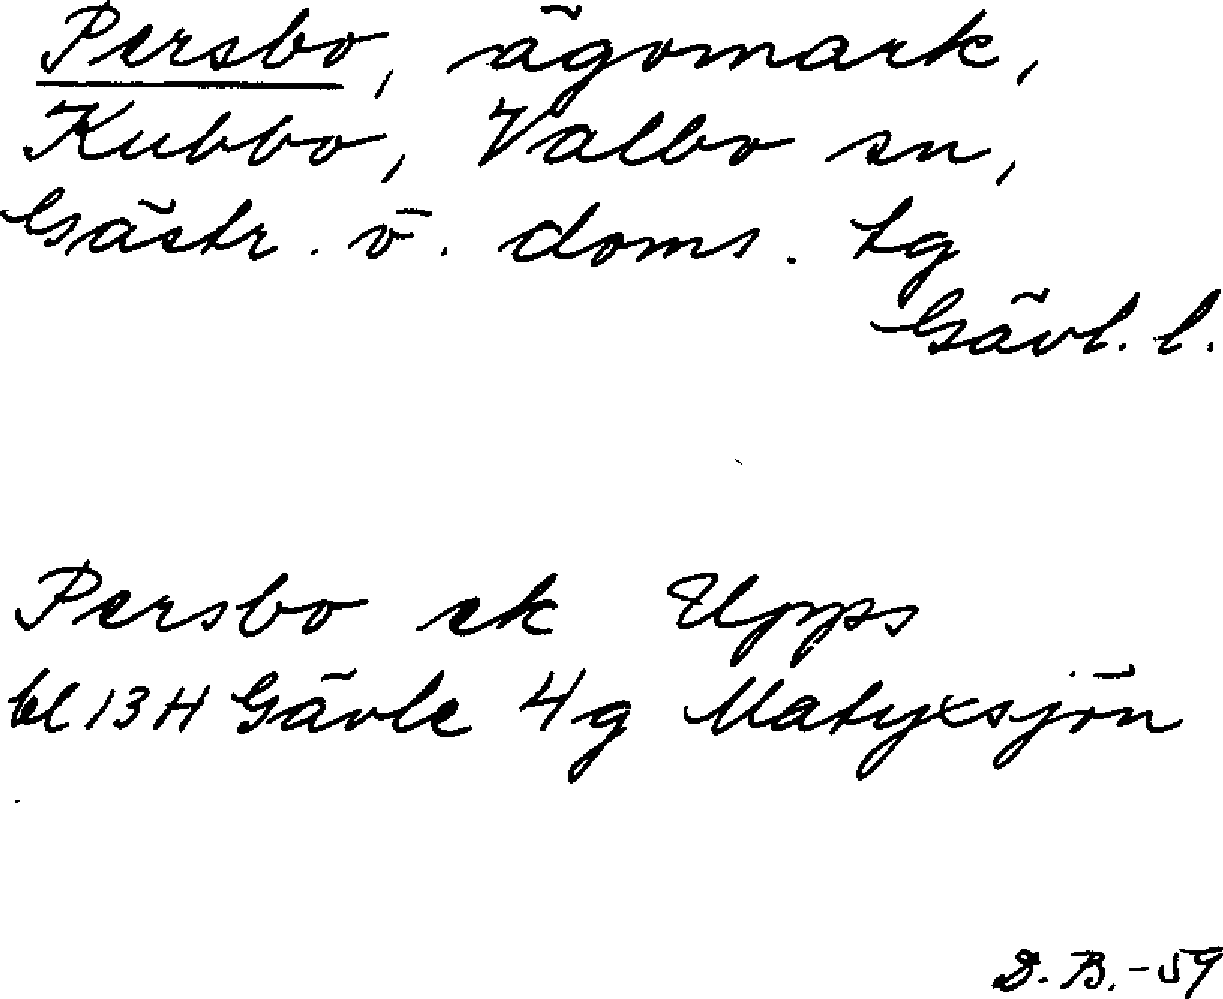 Persbo, ägomark,
Kubbo, Valbo sn,
Gästr. ö. doms. tg
Gävl. l.
Persbo ek Upps
bl 13 H Gävle 4g Matyxsjön
D. B. - 59